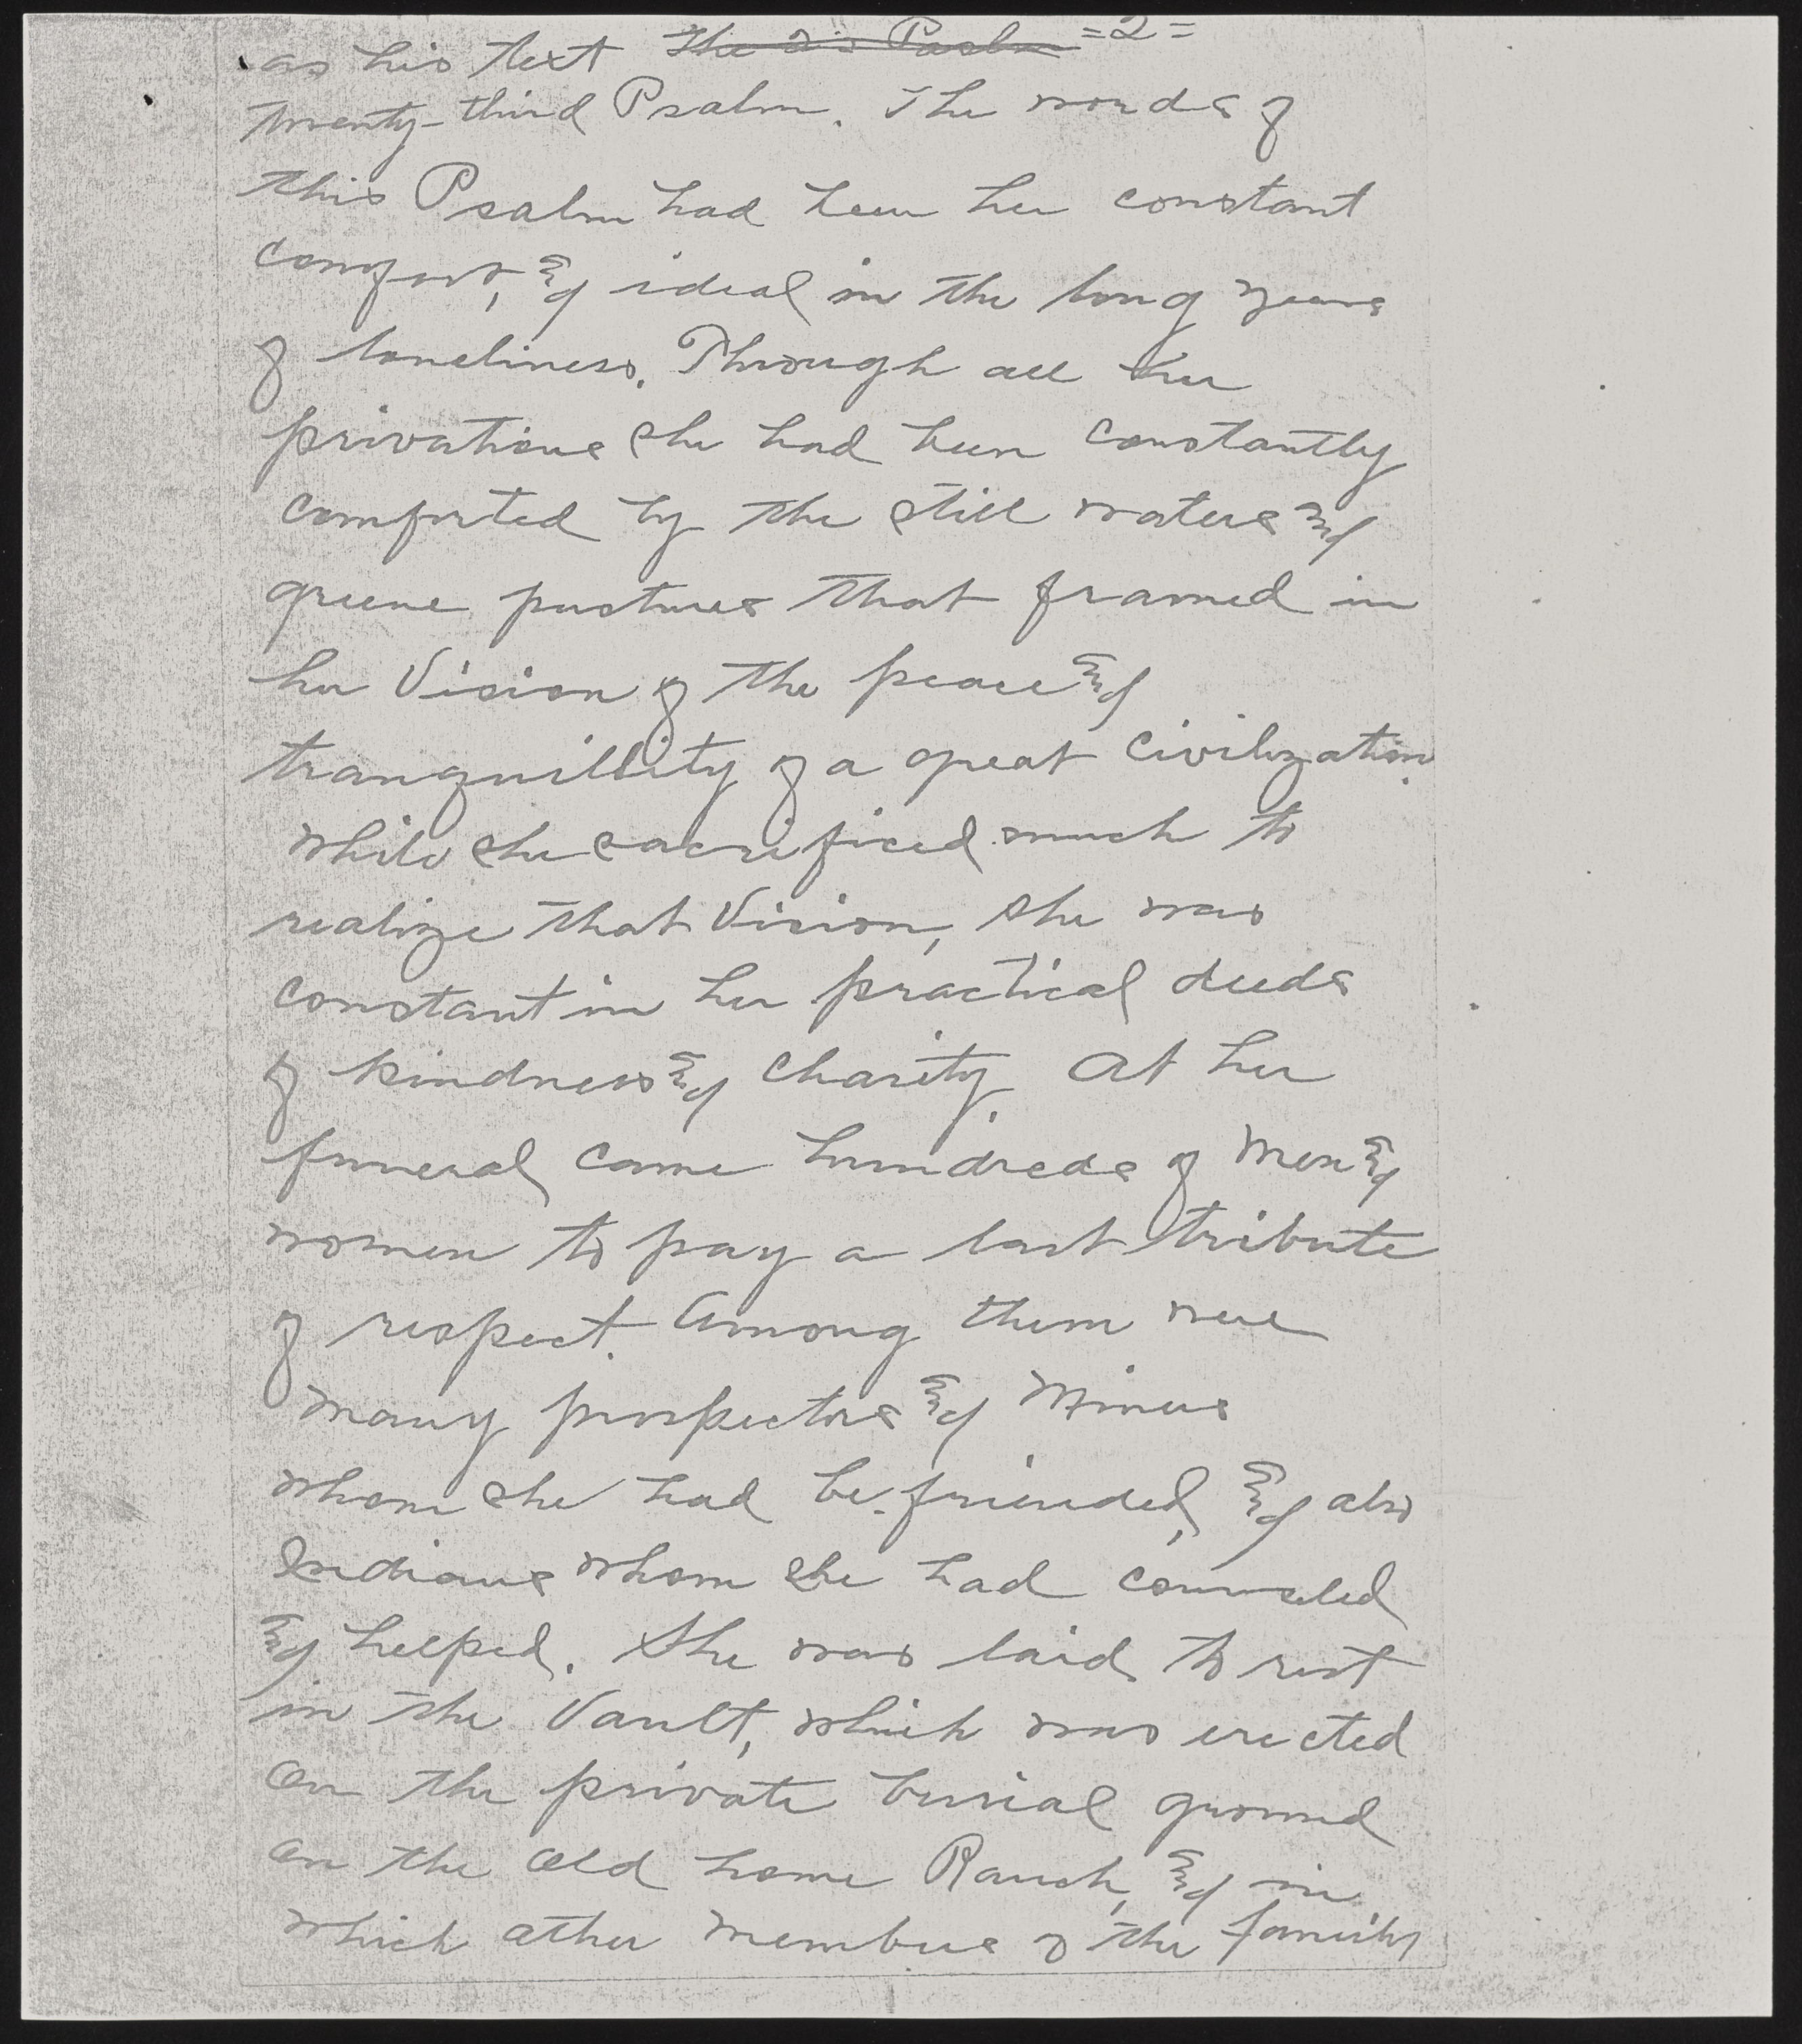 as his text ~~The 23 Psalm~~ =2=
twenty-third Psalm. The words of
this Psalm had been her constant
comfort, & ideal in the long years
of loneliness. Through all her
privations she had been constantly
comforted by the still waters &
greene pastures that framed in
her Vision of the peace &
tranquillity of a great civilization.
While she sacrificed much to
realize that Vision, she was
constant in her practical deeds
of kindness & charity. At her
funeral came hundreds of men &
women to pay a last tribute
of respect. Among them were
many prospectors & Miners
whom she had be-friended, & also
Indians whom she had counseled
& helped. She was laid to rest
in the Vault, which was erected
on the private burial ground
on the old home Ranch, & in
which other members of the family